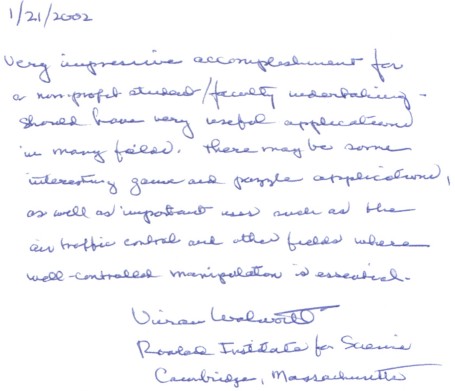 1/21/2002
Very impressive accomplishment for
a non-profit student/faculty undertaking -
should have very useful applications
in many fields. There may be some
interesting game and puzzle applications,
as well as important uses such as the
air traffic control and other fields where
well-controlled manipulation is essential.
Vivian Walworth
Rowland Institute for Science
Cambridge, Massachusetts